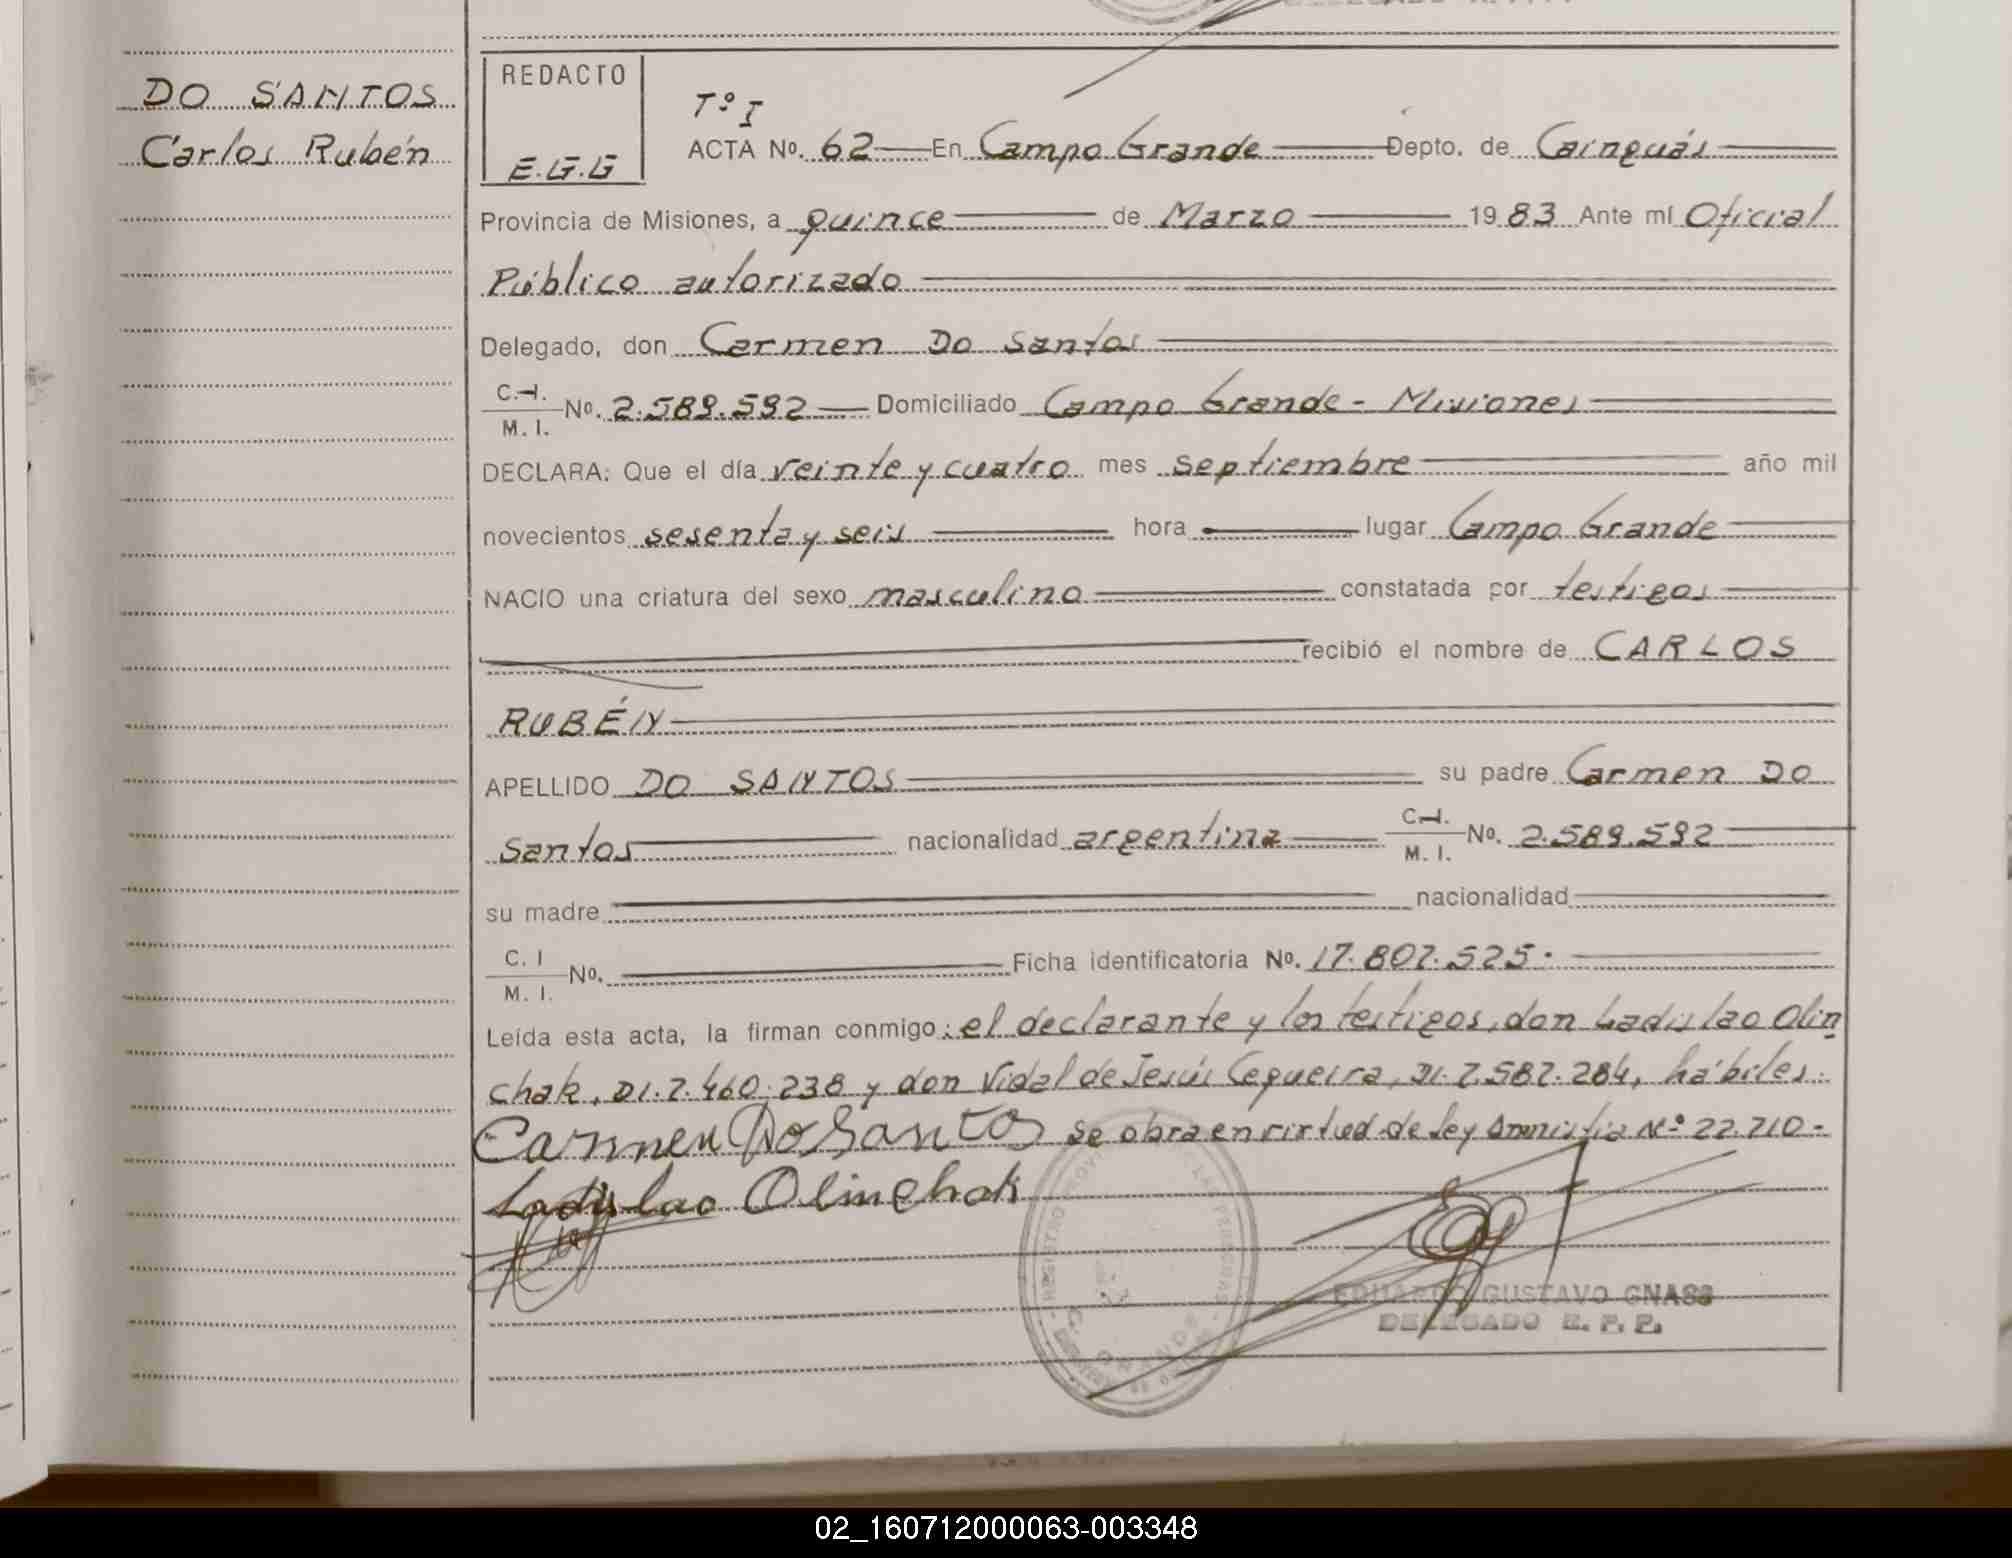 DO SANTOS
Carlos Rubén
REDACTO
E.G.G
Tº I
ACTA Nº. 62 En Campo Grande Depto. de Cainguás
Provincia de Misiones, a quince de Marzo 19 83 Ante mí Oficial
Público autorizado
Delegado, don Carmen Do Santos
C.I. / M. I. Nº. 2.589.592 Domiciliado Campo Grande - Misiones
DECLARA: Que el día veinte y cuatro mes septiembre año mil
novecientos sesenta y seis hora lugar Campo Grande
NACIO una criatura del sexo masculino constatada por testigos
recibió el nombre de CARLOS
RUBÉN
APELLIDO DO SANTOS su padre Carmen Do
Santos nacionalidad argentina C.I. / M. I. Nº. 2.589.592
su madre nacionalidad
C. I / M. I. Nº. Ficha identificatoria Nº. 17.807.525.
Leída esta acta, la firman conmigo: el declarante y los testigos, don Ladislao Olin
chak, DI. 7.460.238 y don Vidal de Jesús Cequeira, DI. 7.587.284, hábiles.
Carmen Do Santos se obra en virtud de ley Amnistia Nº 22.710-
Ladislao Olinchak
EDUARDO GUSTAVO GNASS
DELEGADO R. P. P.
02_160712000063-003348